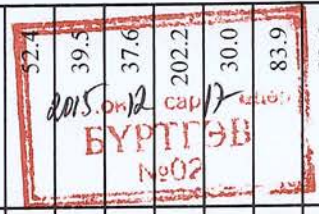 52.4
39.5
37.6
202.2
30.0
83.9
2015 он 12 сар 17
БҮРТГЭВ
№02